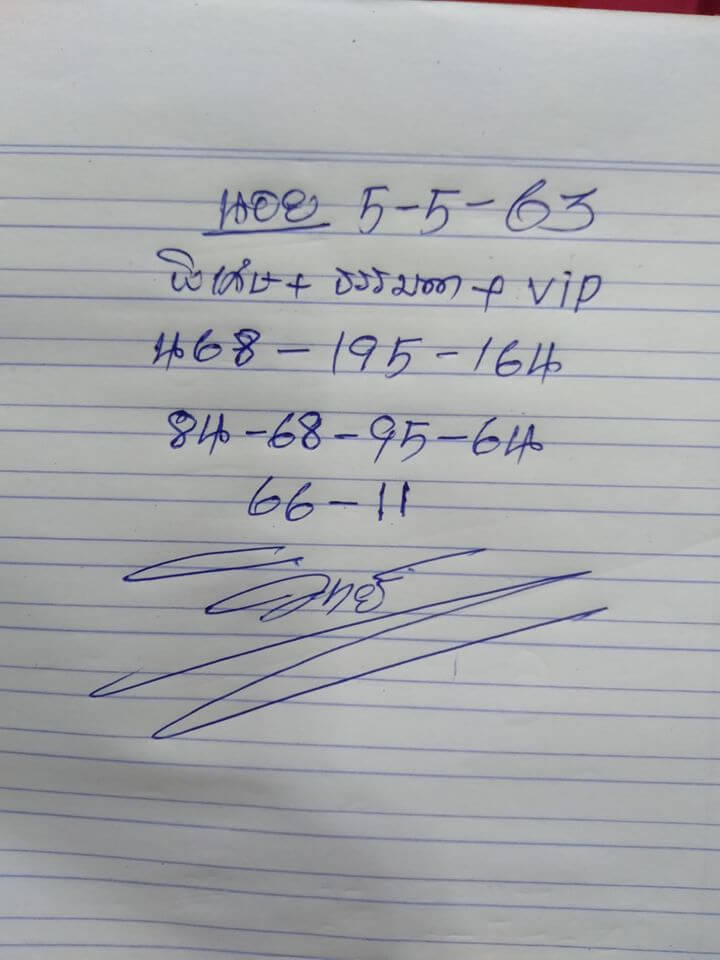 นอย 5-5-63
พิเศษ + ธรรมดา + Vip
468 - 195 - 164
84 - 68 - 95 - 64
66 - 11